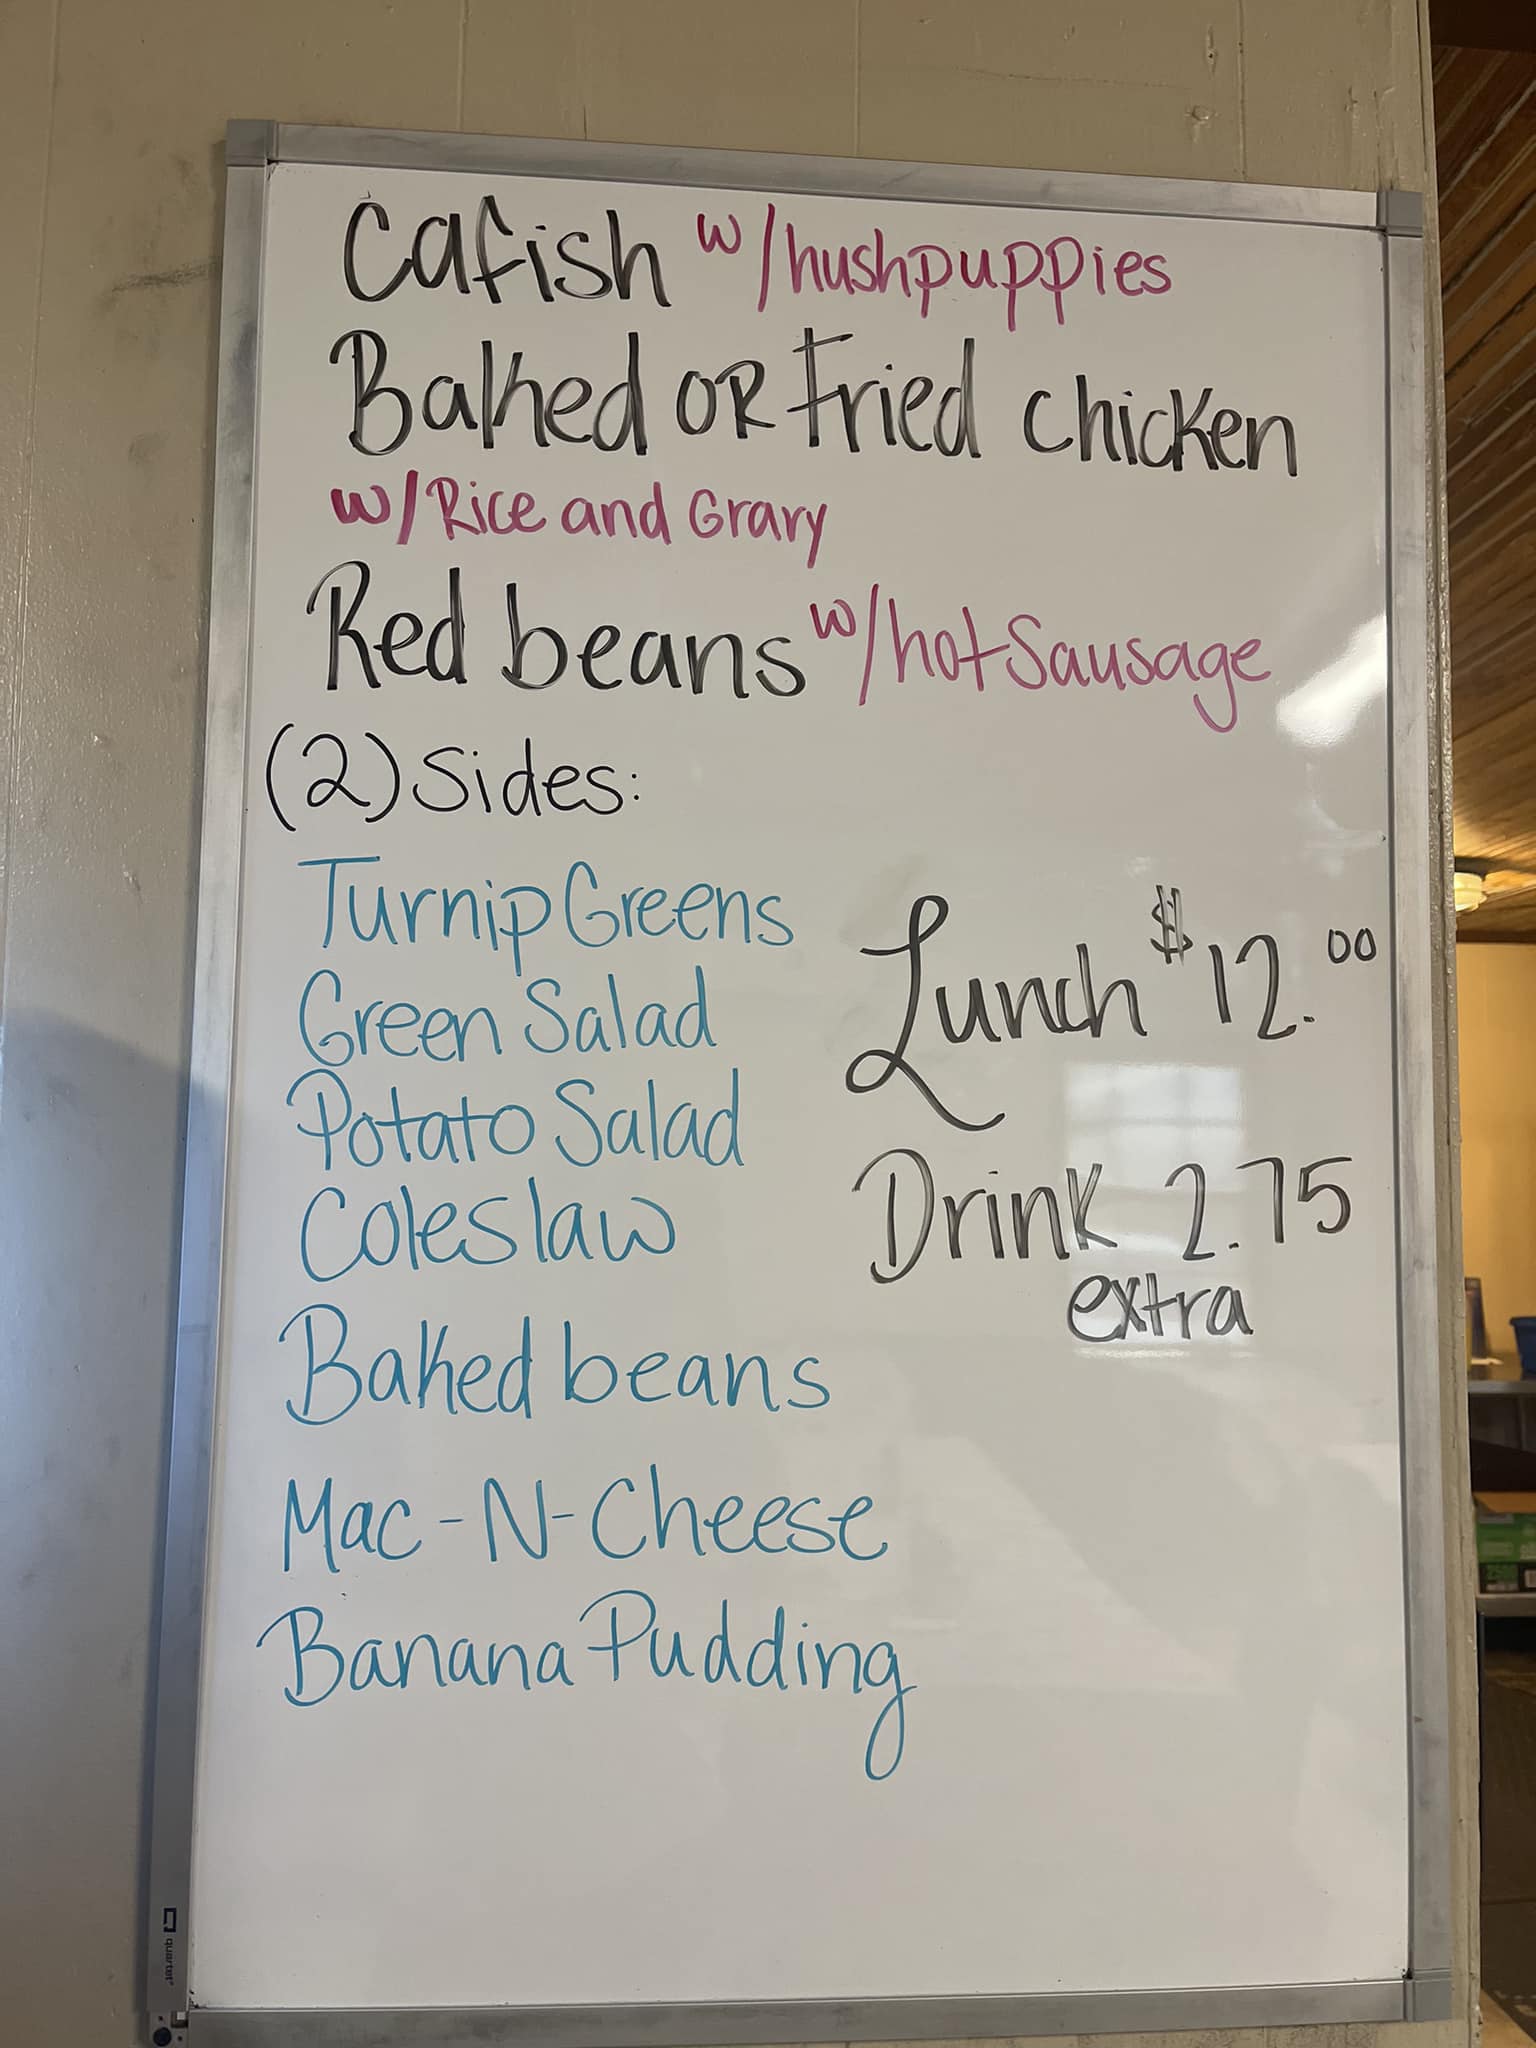 Cafish w/hushpuppies
Baked OR Fried chicken
w/Rice and Gravy
Red beans w/hot Sausage
(2) Sides:
Turnip Greens
Green Salad
Potato Salad
Coleslaw
Baked beans
Mac-N-Cheese
Banana Pudding
Lunch $12.00
Drink 2.75
extra
quartet